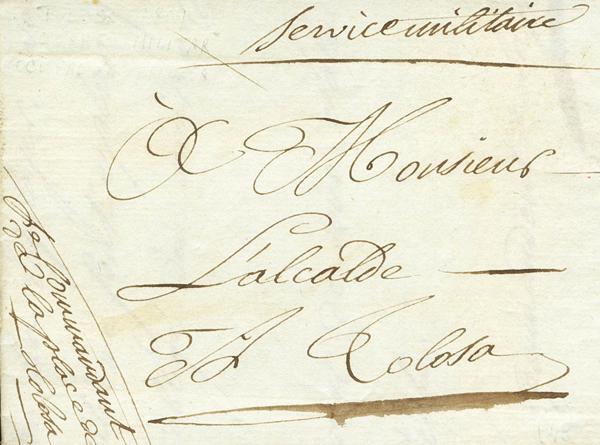 Service militaire
À Monsieur
L'alcalde
A Tolosa
Le Commandant
de la place de
Tolosa